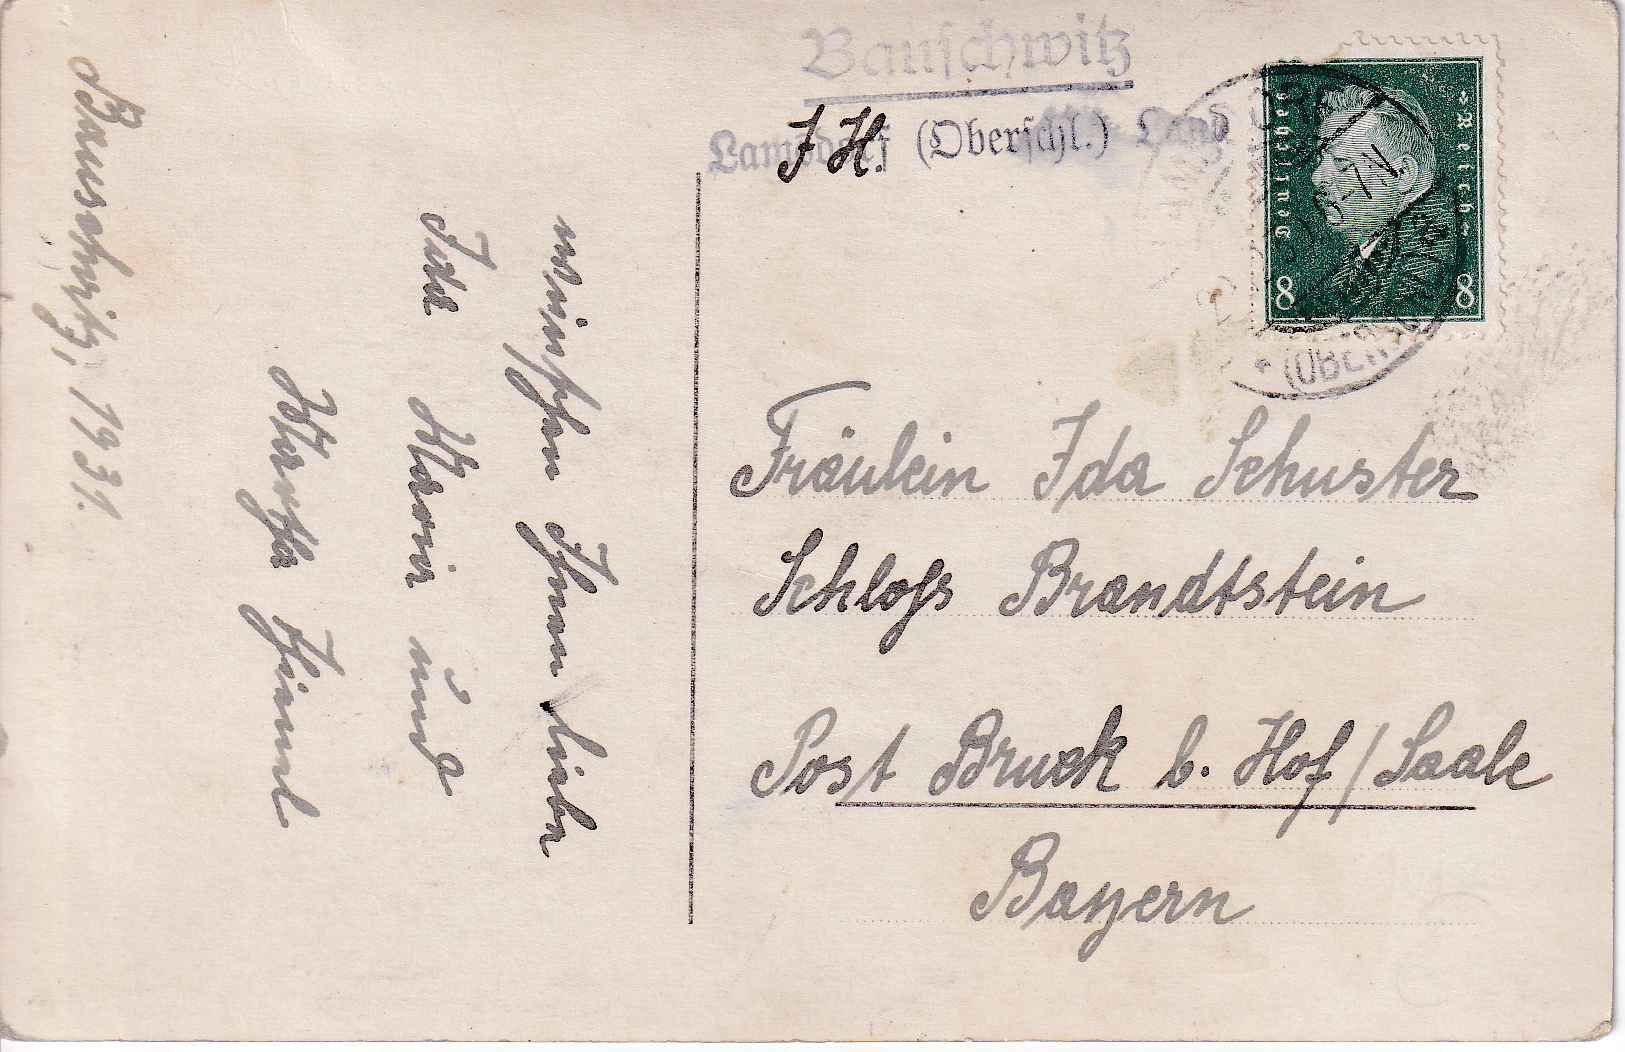 Bauschwitz
Lamsdorf (Oberschl.) Land
J H.
Deutsches Reich
8 8
(OBER
Fräulein Ida Schuster
Schloss Brandtstein
Post Bruck b. Hof/Saale
Bayern
Bauschwitz, 1931.
wünschen Ihnen liebe
Ida Maria und